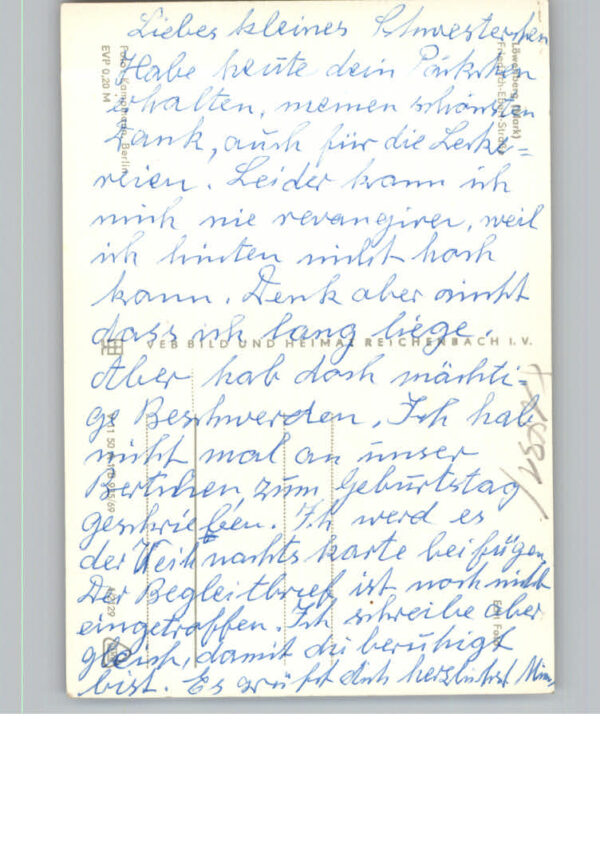 Liebes kleines Schwesterchen
Habe heute dein Päkchen
erhalten, meinen schönsten
Dank, auch für die Lecke=
reien. Leider kann ich
mich nie revangiren, weil
ich hinten nicht hoch
kann. Denk aber nicht
dass ich lang liege.
Aber hab doch mächti-
ge Beschwerden. Ich hab
nicht mal an unser
Bertchen, zum Geburtstag
geschrieben. Ich werd es
der Weihnachtskarte beifügen.
Der Begleitbrief ist noch nicht
eingetroffen. Ich schreibe aber
gleich, damit du beruhigt
bist. Es grüßt dich herzlichst
Löwenberg (Mark)
Friedrich-Ebert-Straße
Berlin
EVP 0,20 M
VEB BILD UND HEIMAT REICHENBACH I. V.
Echt Foto